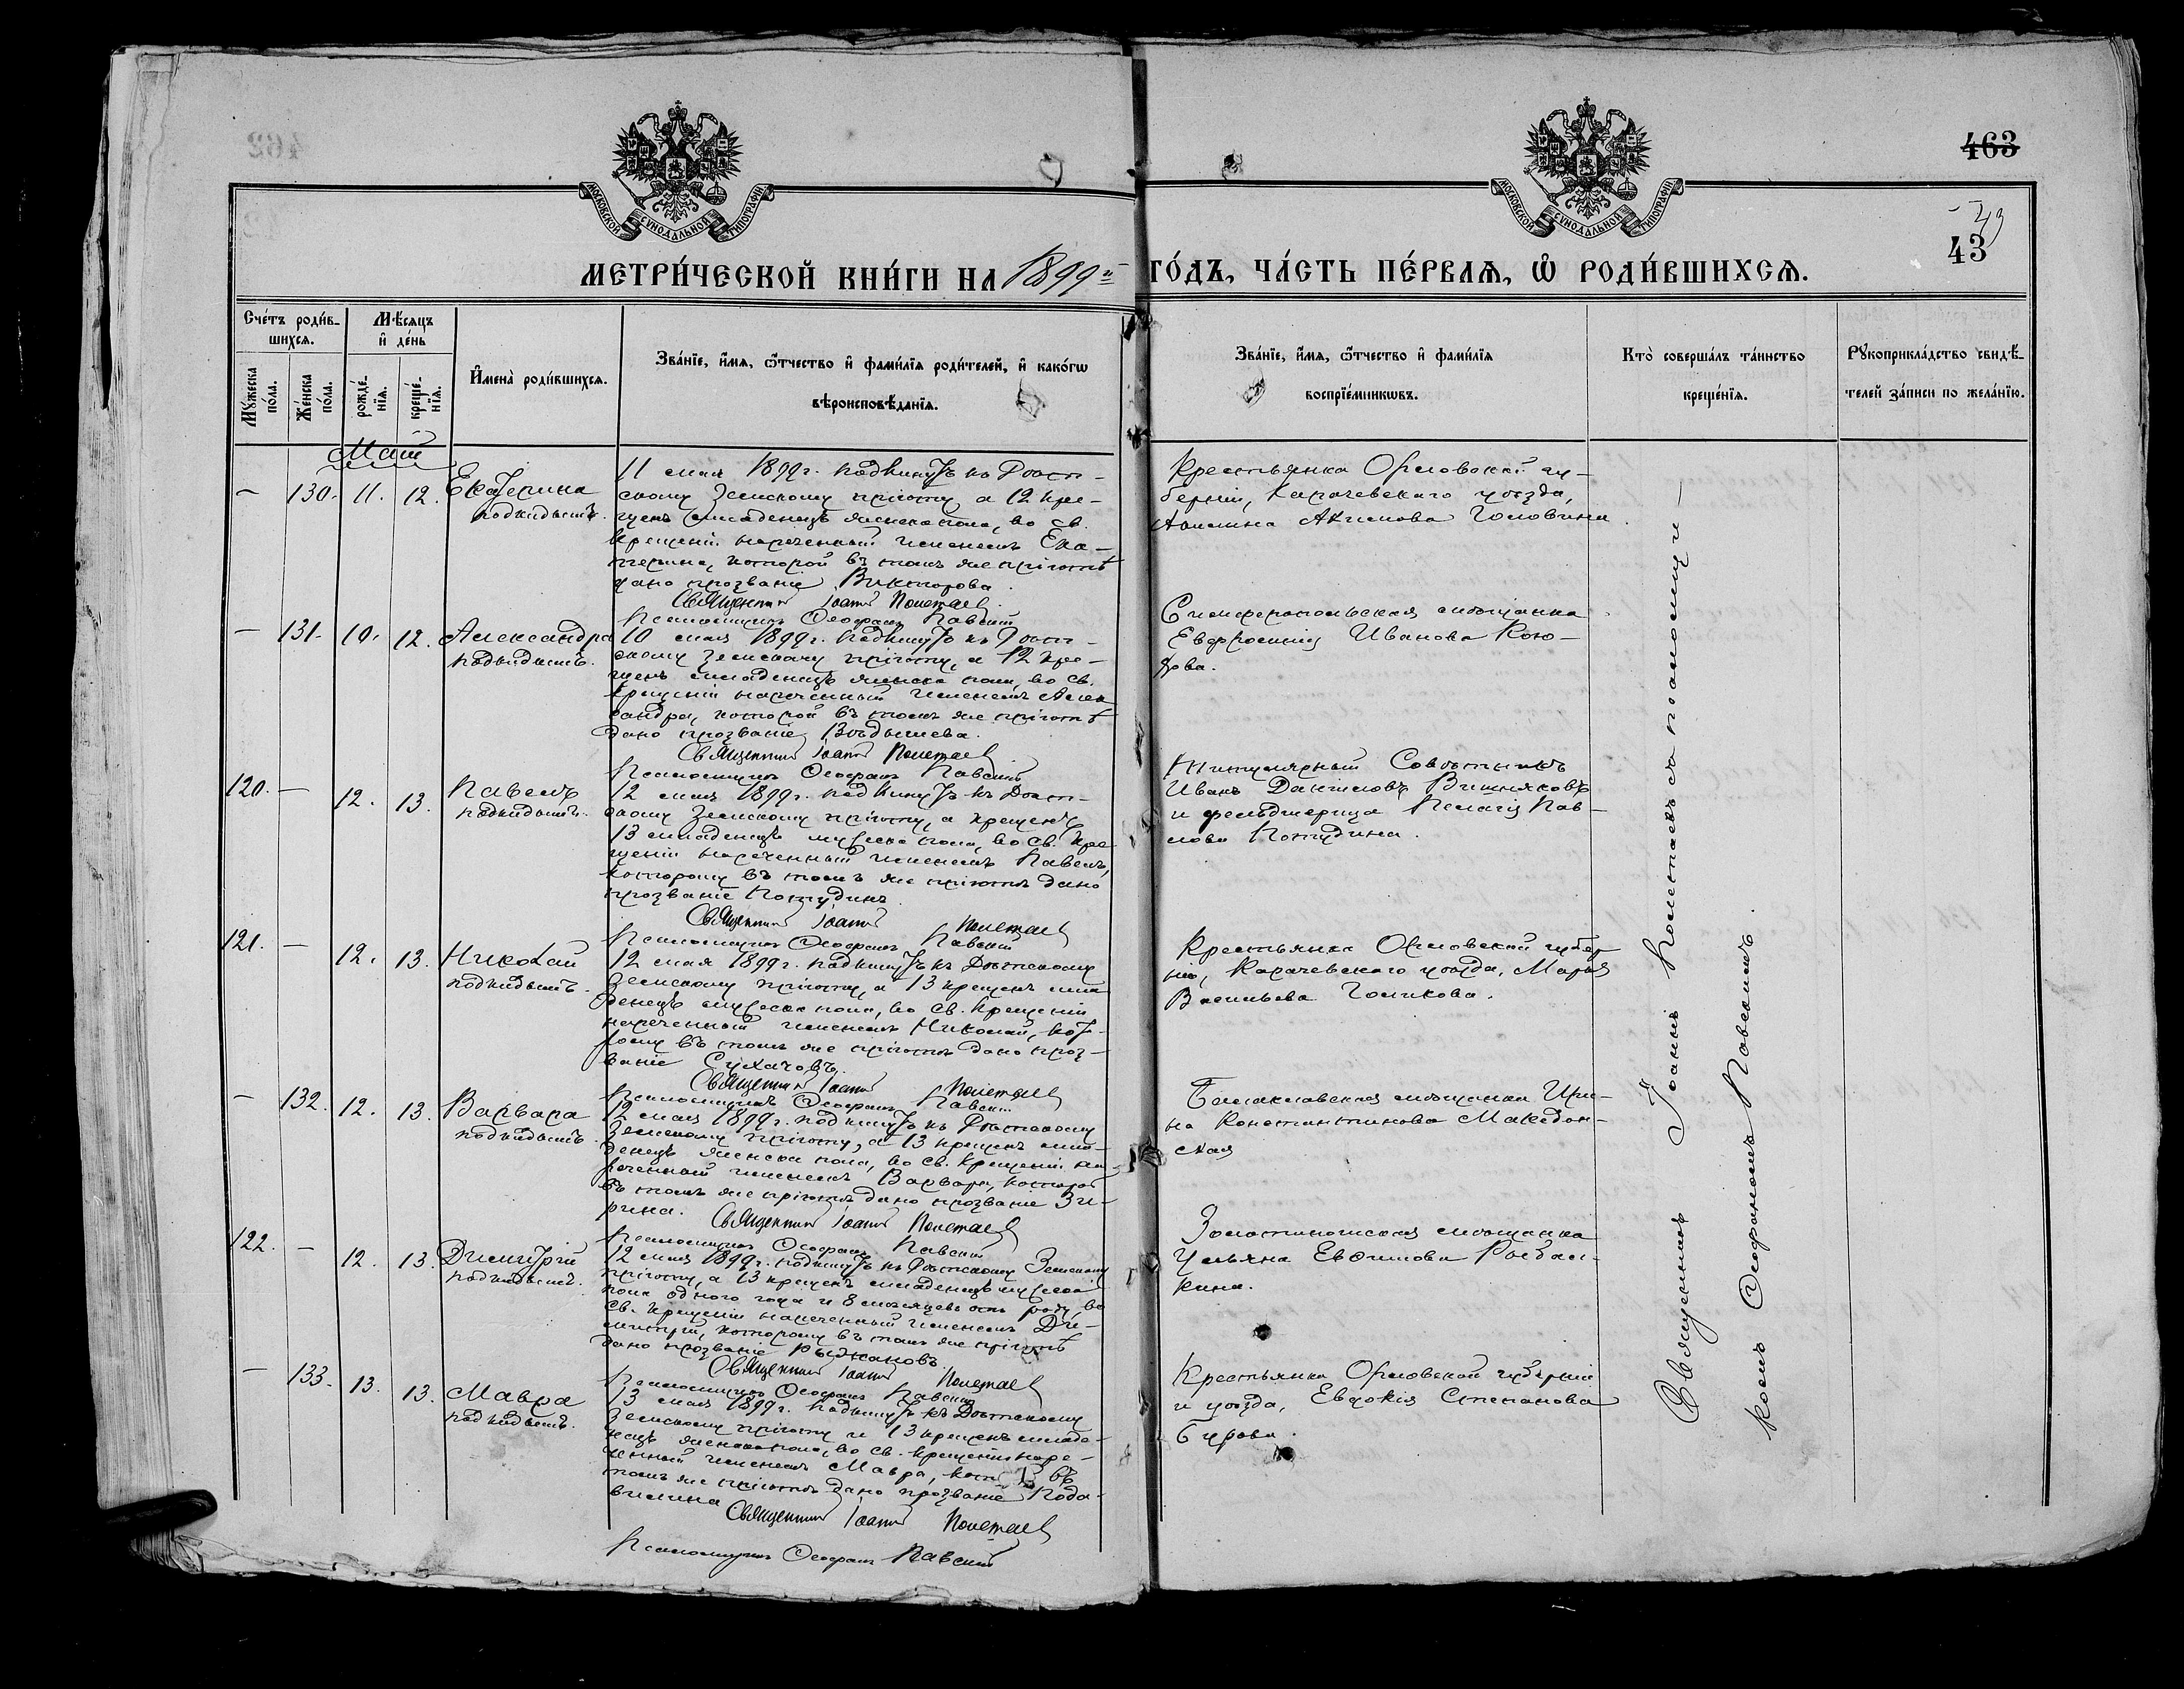 463
43
МОСКОВСКОЙ СѴНОДАЛЬНОЙ ТИПОГРАФІИ
МОСКОВСКОЙ СѴНОДАЛЬНОЙ ТИПОГРАФІИ
МЕТРИ́ЧЕСКОЙ КНИ́ГИ НА 1899й ГО́ДЪ, ЧА́СТЬ ПЕ́РВАѦ, Ѡ҆ РОДИ́ВШИХСѦ.
Сче́тъ роди́в-
шихсѧ.
Мꙋ́жеска по́ла.
Же́нска по́ла.
Мѣ́сѧцъ
и҆ де́нь
рожде́-
нїѧ.
креще́-
нїѧ.
И҆мена̀ роди́вшихсѧ.
Зва́нїе, и҆́мѧ, ѻ҆́тчество и҆ фами́лїѧ роди́телей, и҆ како́гѡ
вѣроисповѣ́данїѧ.
Зва́нїе, и҆́мѧ, ѻ҆́тчество и҆ фами́лїѧ
воспрїе́мникѡвъ.
Кто̀ соверша́лъ та́инство
креще́нїѧ.
Рꙋкоприкла́дство свидѣ́-
телей за́писи по жела́нїю.
Май
— 130. 11. 12. Екатерина
подкидышъ.
11 мая 1899 г. подкинутъ къ Дѣтскому
Земскому пріюту, а 12 кре-
щенъ младенецъ женска пола, во св.
крещеніи нареченный именемъ Ека-
терина, которой въ томъ же пріютѣ
дано прозваніе Викторова.
Священникъ Іоаннъ Полетаевъ
Псаломщикъ Ѳеофанъ Павскій
Крестьянка Орловской гу-
берніи, Карачевскаго уѣзда,
Акимова Головина.
— 131. 10. 12. Александра
подкидышъ.
10 мая 1899 г. подкинутъ къ Дѣт-
скому Земскому пріюту, а 12 кре-
щенъ младенецъ женска пола, во св.
крещеніи нареченный именемъ Алек
сандра, которой въ томъ же пріютѣ
дано прозваніе
Священникъ Іоаннъ Полетаевъ
Псаломщикъ Ѳеофанъ Павскій
Симферопольская мѣщанка
Евфросинія Иванова
120. — 12. 13. Павелъ
подкидышъ.
12 мая 1899 г. подкинутъ къ Дѣт-
скому Земскому пріюту, а крещенъ
13 младенецъ мужска пола, во св. кре
щеніи нареченный именемъ Павелъ,
которому въ томъ же пріютѣ дано
прозваніе Потудинъ.
Священникъ Іоаннъ Полетаевъ
Псаломщикъ Ѳеофанъ Павскій
Титулярный Совѣтникъ
Иванъ Даниловъ Вишняковъ
и фельдшерица Пелагія Пав-
лова Потудина.
121. — 12. 13. Николай
подкидышъ.
12 мая 1899 г. подкинутъ къ Дѣтскому
Земскому пріюту, а 13 крещенъ мла
денецъ мужска пола, во св. крещеніи
нареченный именемъ Николай, кот-
рому въ томъ же пріютѣ дано проз-
ваніе Сухачовъ.
Священникъ Іоаннъ Полетаевъ
Псаломщикъ Ѳеофанъ Павскій
Крестьянка Орловской губер
ніи, Карачевскаго уѣзда, Марія
Васильева Голикова.
— 132. 12. 13. Варвара
подкидышъ.
12 мая 1899 г. подкинутъ къ Дѣтскому
Земскому пріюту, а 13 крещенъ мла-
денецъ женска пола, во св. крещеніи на
реченный именемъ Варвара, которой
въ томъ же пріютѣ дано прозваніе Зи-
рина.
Священникъ Іоаннъ Полетаевъ
Псаломщикъ Ѳеофанъ Павскій
Балаклавская мѣщанка Ири-
на Константинова Македон-
ская
122. — 12. 13. Димитрій
подкидышъ.
12 мая 1899 г. подкинутъ къ Дѣтскому Земскому
пріюту, а 13 крещенъ младенецъ мужска
пола одного года и 8 мѣсяцевъ отъ роду, во
св. крещеніи нареченный именемъ Ди-
митрій, которому въ томъ же пріютѣ
дано прозваніе Рыжановъ.
Священникъ Іоаннъ Полетаевъ
Псаломщикъ Ѳеофанъ Павскій
мѣщанка
Ульяна Евѳимова Рыбал-
кина.
— 133. 13. 13. Мавра
подкидышъ.
13 мая 1899 г. подкинутъ къ Дѣтскому
Земскому пріюту и 13 крещенъ младе-
нецъ женска пола, во св. крещеніи наре-
ченный именемъ Мавра, въ
томъ же пріютѣ дано прозваніе
Священникъ Іоаннъ Полетаевъ
Псаломщикъ Ѳеофанъ Павскій
Крестьянка Орловской губерніи
и уѣзда, Евдокія Степанова
Бурова.
Священникъ Іоаннъ Полетаевъ съ псаломщи-
комъ Ѳеофаномъ Павскимъ.